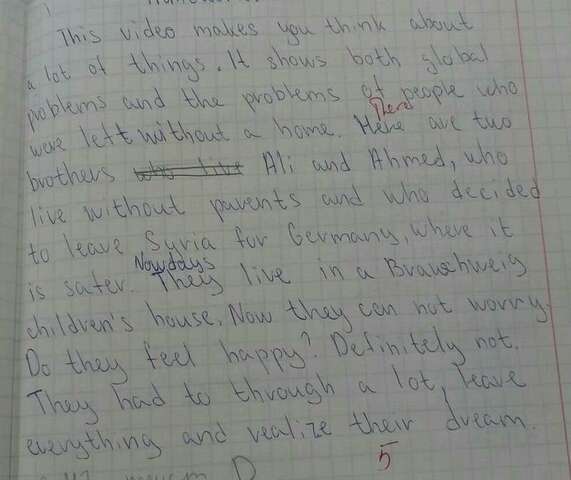 This video makes you think about
a lot of things. It shows both global
problems and the problems of people who
There
were left without a home. Here are two
brothers Ali and Ahmed, who
live without parents and who decided
to leave Syria for Germany, where it
Nowdays
is safer. They live in a Braunschweig
children's house. Now they can not worry.
Do they feel happy? Definitely not.
They had to through a lot, leave
everything and realize their dream.
5